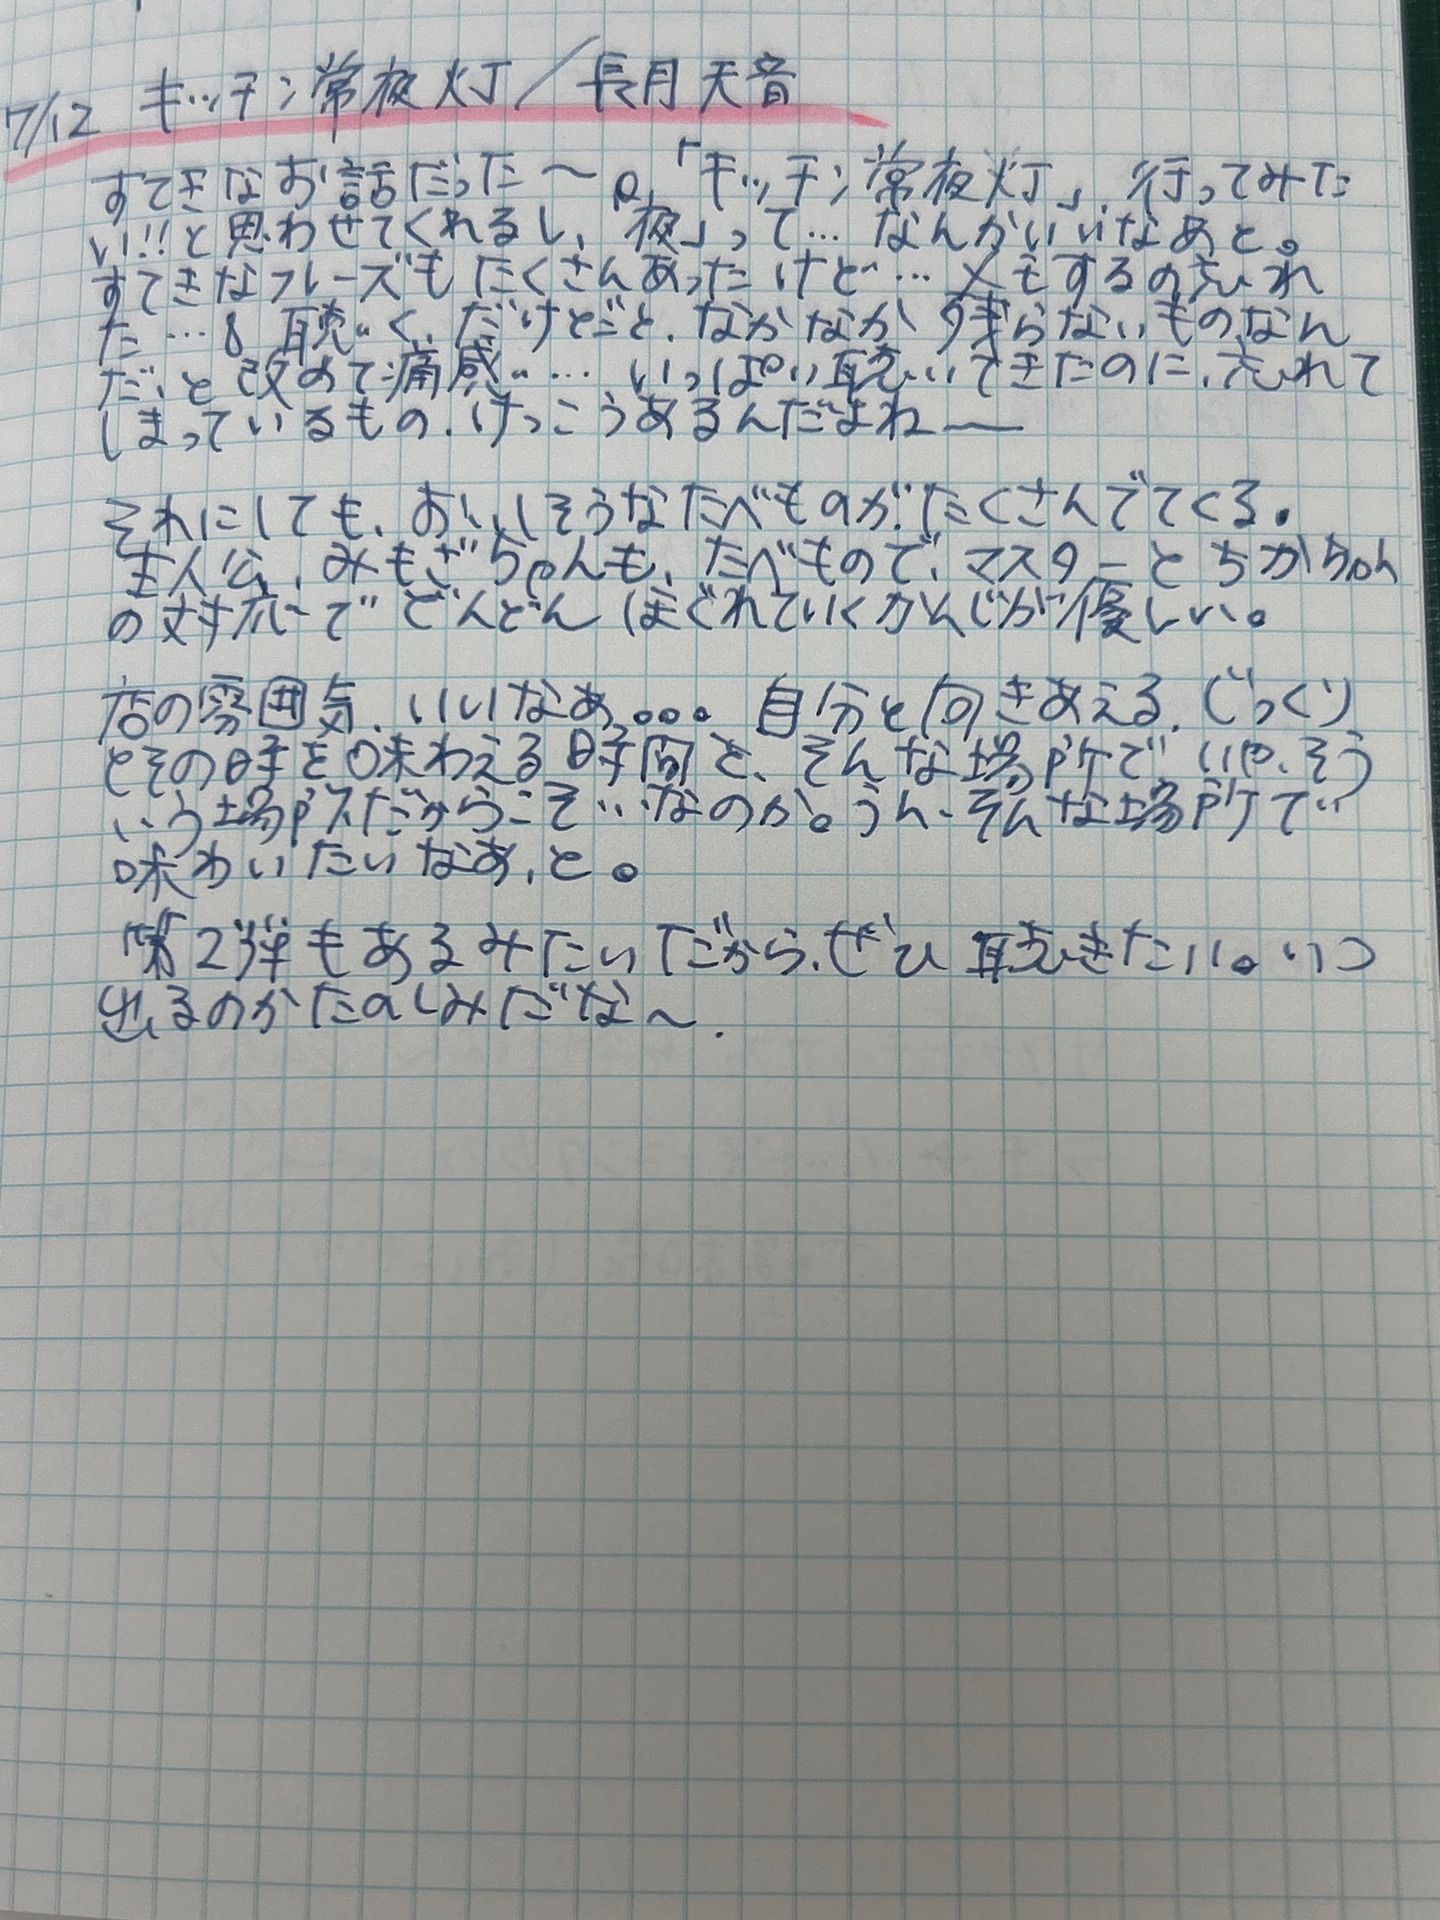 7/12 キッチン常夜灯／長月天音
すてきなお話だった〜。「キッチン常夜灯」、行ってみた
い!!と思わせてくれるし、「夜」って…なんかいいなあと。
すてきなフレーズもたくさんあったけど…メモするの忘れ
た…。聴く、だけだと、なかなか残らないものなん
だ、と改めて痛感…。いっぱい聴いてきたのに、忘れて
しまっているもの、けっこうあるんだよねー
それにしても、おいしそうなたべものがたくさんでてくる。
主人公、みもざちゃんも、たべもので、マスターとちかちゃん
の丈対応でどんどんほぐれていくかんじが優しい。
店の雰囲気、いいなあ。。。自分と向きあえる、じっくり
とその時を味わえる時間と、そんな場所で いや、そう
いう場所だからこそ、なのか。うん、そんな場所で
味わいたいなあ、と。
第2弾もあるみたいだから、ぜひ聴きたい。いつ
出るのかたのしみだな〜.